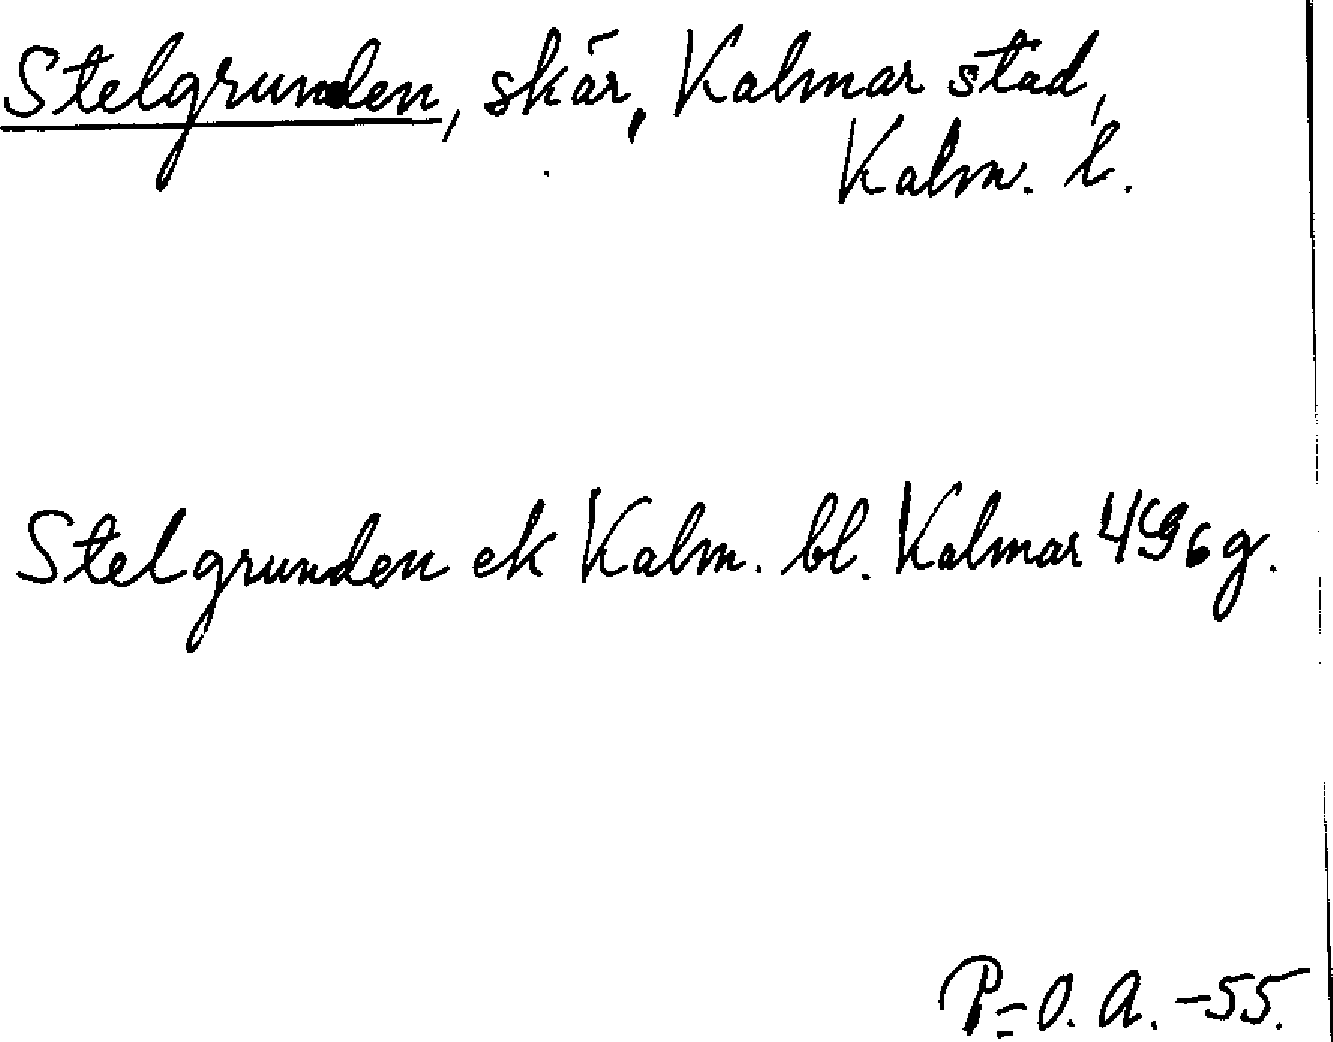 Stelgrunden, skär, Kalmar stad,
Kalm. l.
Stelgrunden ek Kalm. bl. Kalmar 4G6g.
P=O. A. -55.